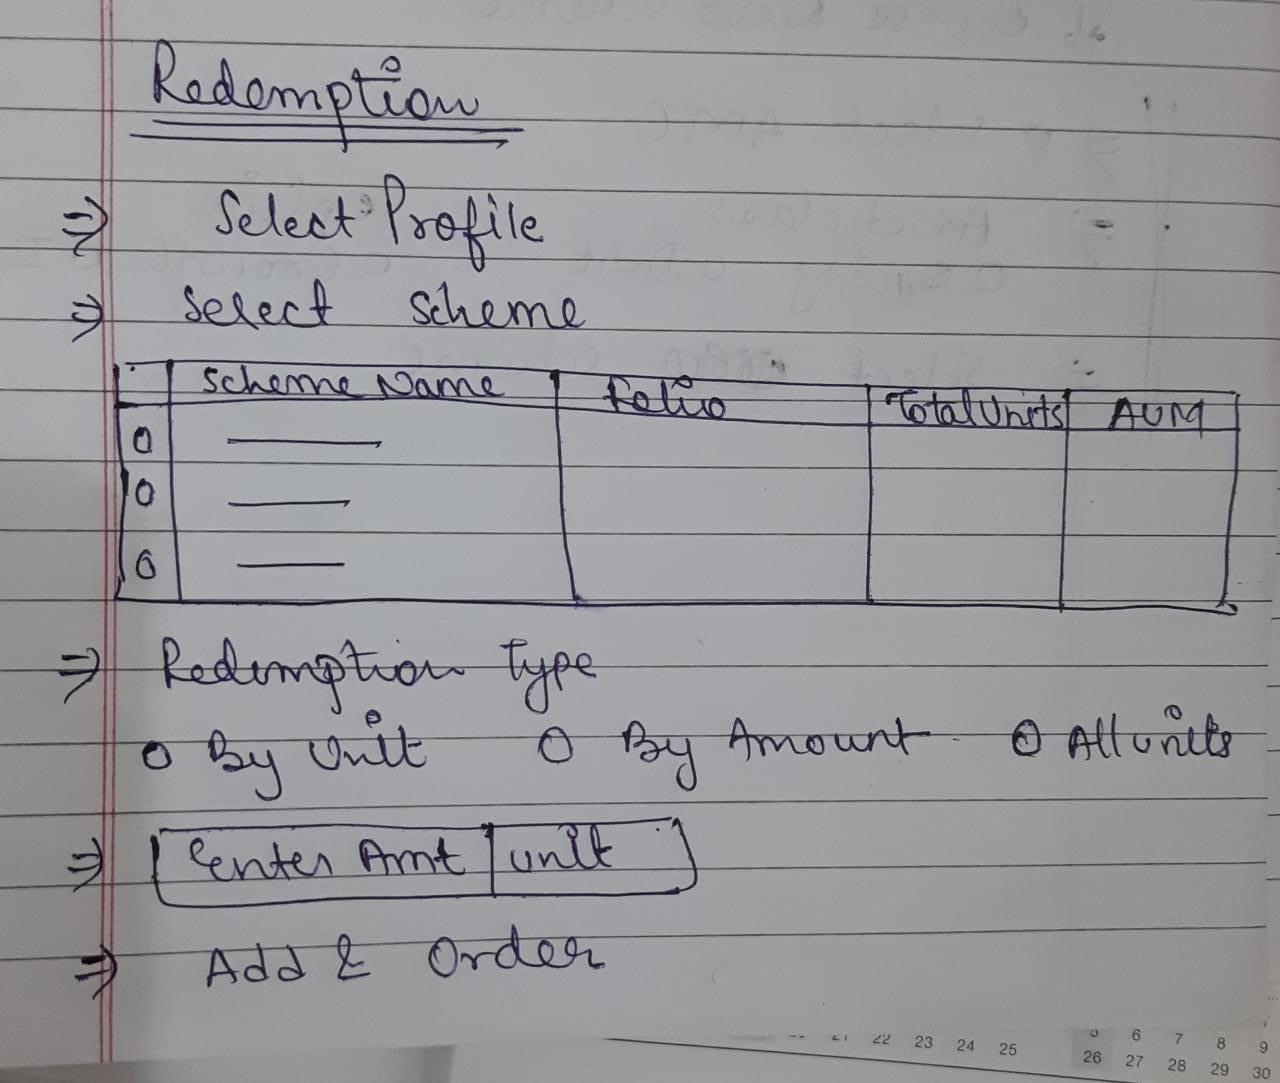 Redemption
⇒ Select Profile
⇒ Select Scheme
Scheme Name Folio Total Units AUM
O
O
O
⇒ Redemption Type
O By Unit O By Amount O All units
⇒ Enter Amt | unit
⇒ Add & Order
5 6 7 8 9
21 22 23 24 25 26 27 28 29 30